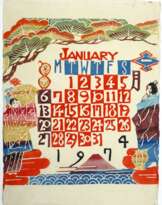 JANUARY
S M T W T F S
1 2 3 4 5
6 7 8 9 10 11 12
13 14 15 16 17 18 19
20 21 22 23 24 25 26
27 28 29 30 31
月
1974